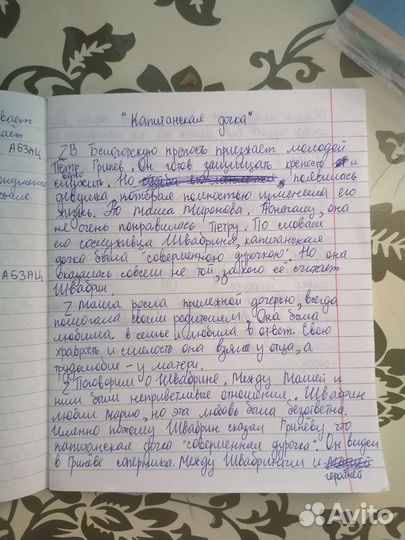 "Капитанская дочка"
Z В Белогорскую крепость приезжает молодой
Петр Гринев. Он готов защищать крепость и
служить. Но появилась
девушка, которая полностью изменила его
жизнь. Это Маша Миронова. Поначалу, она
не очень понравилась Петру. По словам
его сослуживца Швабрина, капитанская
дочка была "совершенною дурочкою". Но она
оказалась совсем не той, за кого её считает
Швабрин.
Z Маша росла прилежной дочерью, всегда
помогала своим родителям. Она была
любима в семье и любила в ответ. Свою
храбрость и смелость она взяла у отца, а
трудолюбие - у матери.
Z Поговорим о Швабрине. Между Машей и
ним были неприветливые отношения. Швабрин
любил Марию, но эта любовь была безответна.
Именно поэтому Швабрин сказал Гриневу, что
капитанская дочка "совершенная дурочка". Он видел
в Гриневе соперника. Между Швабриным и
героиней
вает
ает
АБЗАЦ
АБЗАЦ
Avito